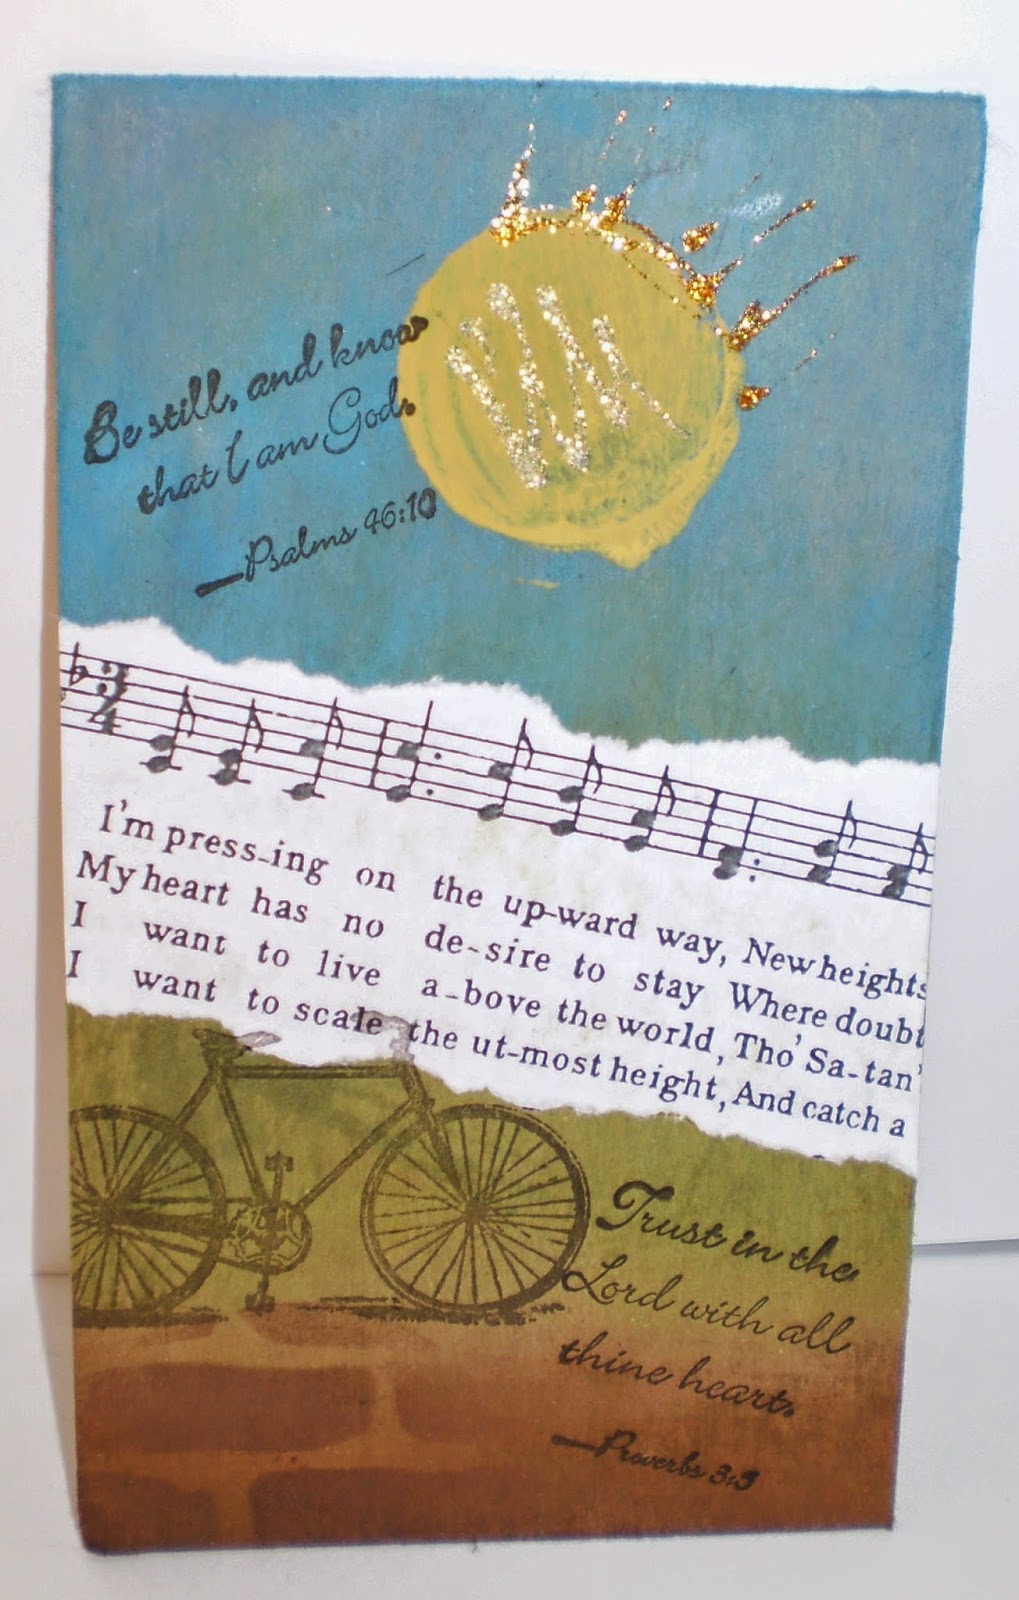 Be still, and know
that I am God.
—Psalms 46:10
3
4
I'm press-ing on the up-ward way, New heights
My heart has no de-sire to stay Where doubt
I want to live a-bove the world, Tho' Sa-tan'
I want to scale the ut-most height, And catch a
Trust in the
Lord with all
thine heart.
—Proverbs 3:5